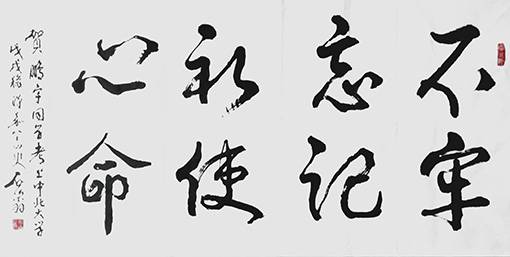 不忘初心
牢记使命
賀鹏宇同学考上中北大学
戊戌